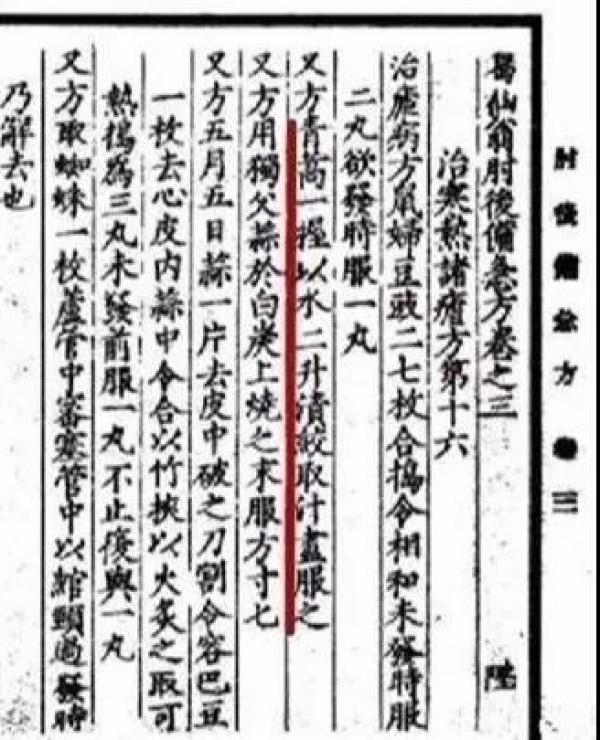 肘後備急方 三
葛仙翁肘後備急方卷之三 陞
治寒熱諸瘧方第十六
治瘧病方鼠婦豆豉二七枚合搗令相和未發時服
二丸欲發時服一丸
又方青蒿一握以水二升漬絞取汁盡服之
又方用獨父蒜於白炭上燒之末服方寸匕
又方五月五日蒜一片去皮中破之刀割令容巴豆
一枚去心皮內蒜中令合以竹挾以火炙之取可
熱搗爲三丸未發前服一丸不止復與一丸
又方取蜘蛛一枚蘆管中審塞管中以綰頸過發時
乃解去也